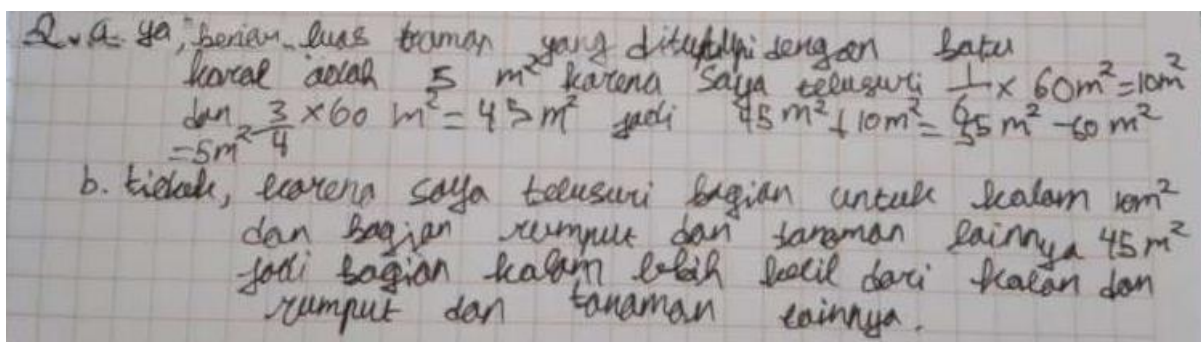 2. a. ya, benar luas taman yang ditutupi dengan batu
koral adalah 5 m² karena saya telusuri 1/6 × 60 m² = 10 m²
dan 3/4 × 60 m² = 45 m² jadi 45 m² + 10 m² = 55 m² - 60 m²
= 5 m²
b. tidak, karena saya telusuri bagian untuk kolam 10m²
dan bagian rumput dan tanaman lainnya 45 m²
jadi bagian kolam lebih kecil dari kolam dan
rumput dan tanaman lainnya.